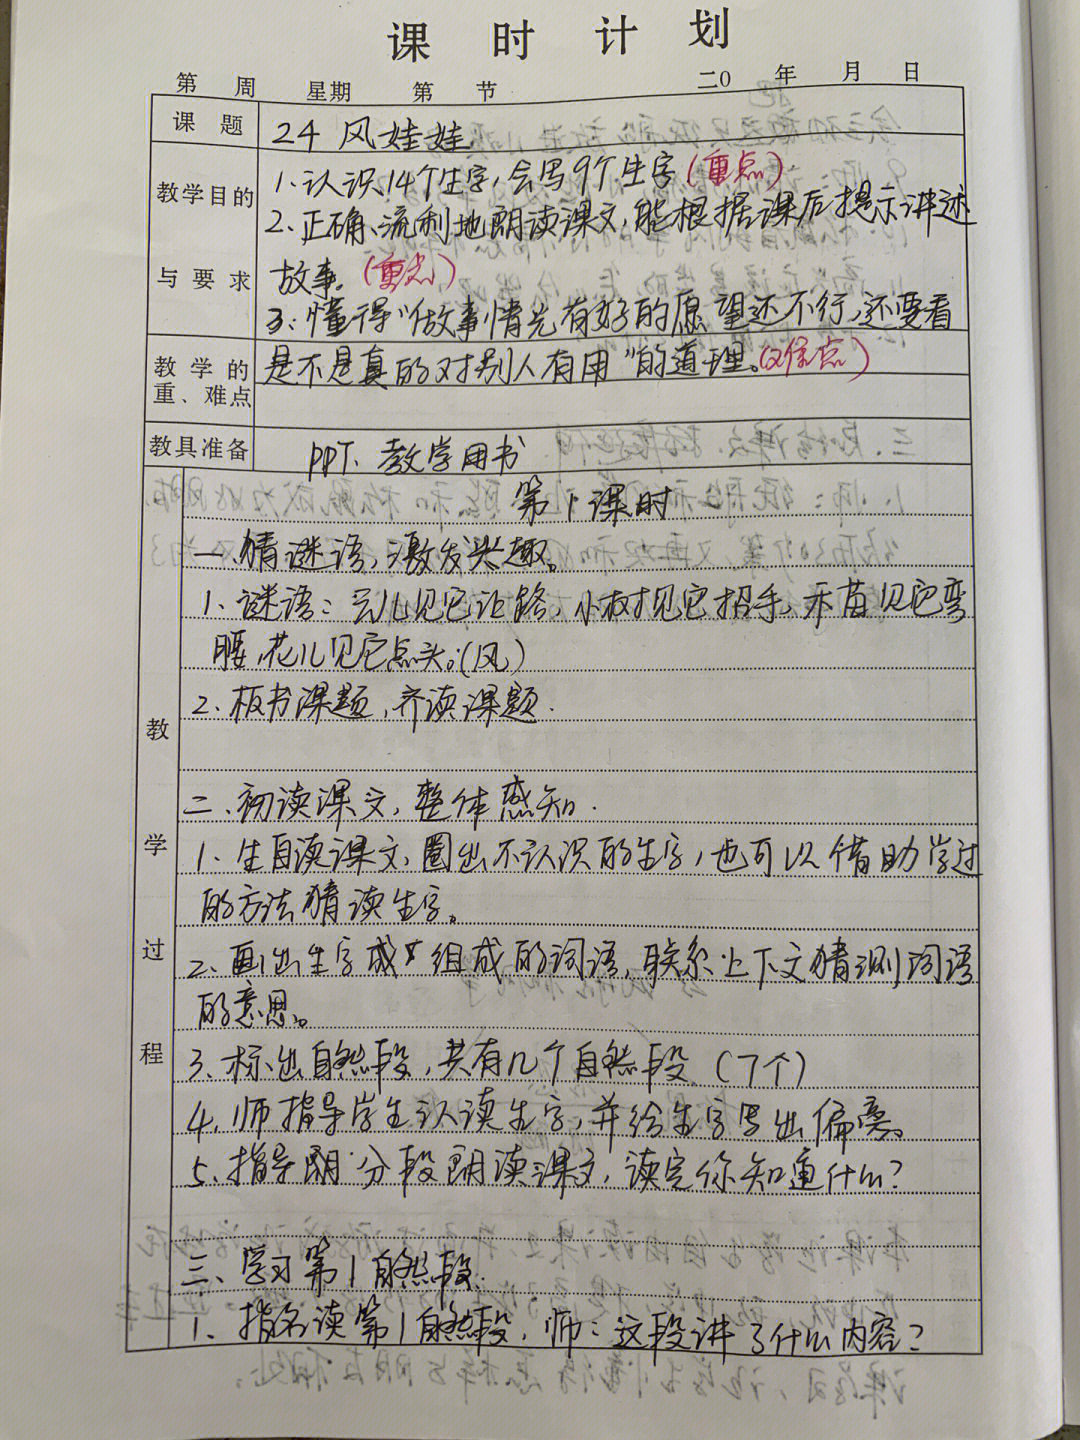 课时计划
第 周 星期 第 节 二0 年 月 日
课题 24 风娃娃
教学目的与要求
1、认识14个生字,会写9个生字(重点)
2、正确、流利地朗读课文,能根据课后提示讲述
故事。(重点)
3:懂得"做事情光有好的愿望还不行,还要看
教学的重、难点
是不是真的对别人有用"的道理。(难点)
教具准备 PPT、教学用书
教学过程
第1课时
一、猜谜语,激发兴趣。
1、谜语:云儿见它让路,小树见它招手,禾苗见它弯
腰,花儿见它点头。(风)
2、板书课题,齐读课题.
二、初读课文,整体感知.
1、生自读课文,圈出不认识的生字,也可以借助学过
的方法猜读生字。
2、画出生字组成的词语,联系上下文猜测词语
的意思。
3、标出自然段,共有几个自然段(7个)
4、师指导学生认读生字,并给生字写出偏旁。
5、指导朗分段朗读课文,读完你知道什么?
三、学习第1自然段.
1、指名读第1自然段,师:这段讲了什么内容?